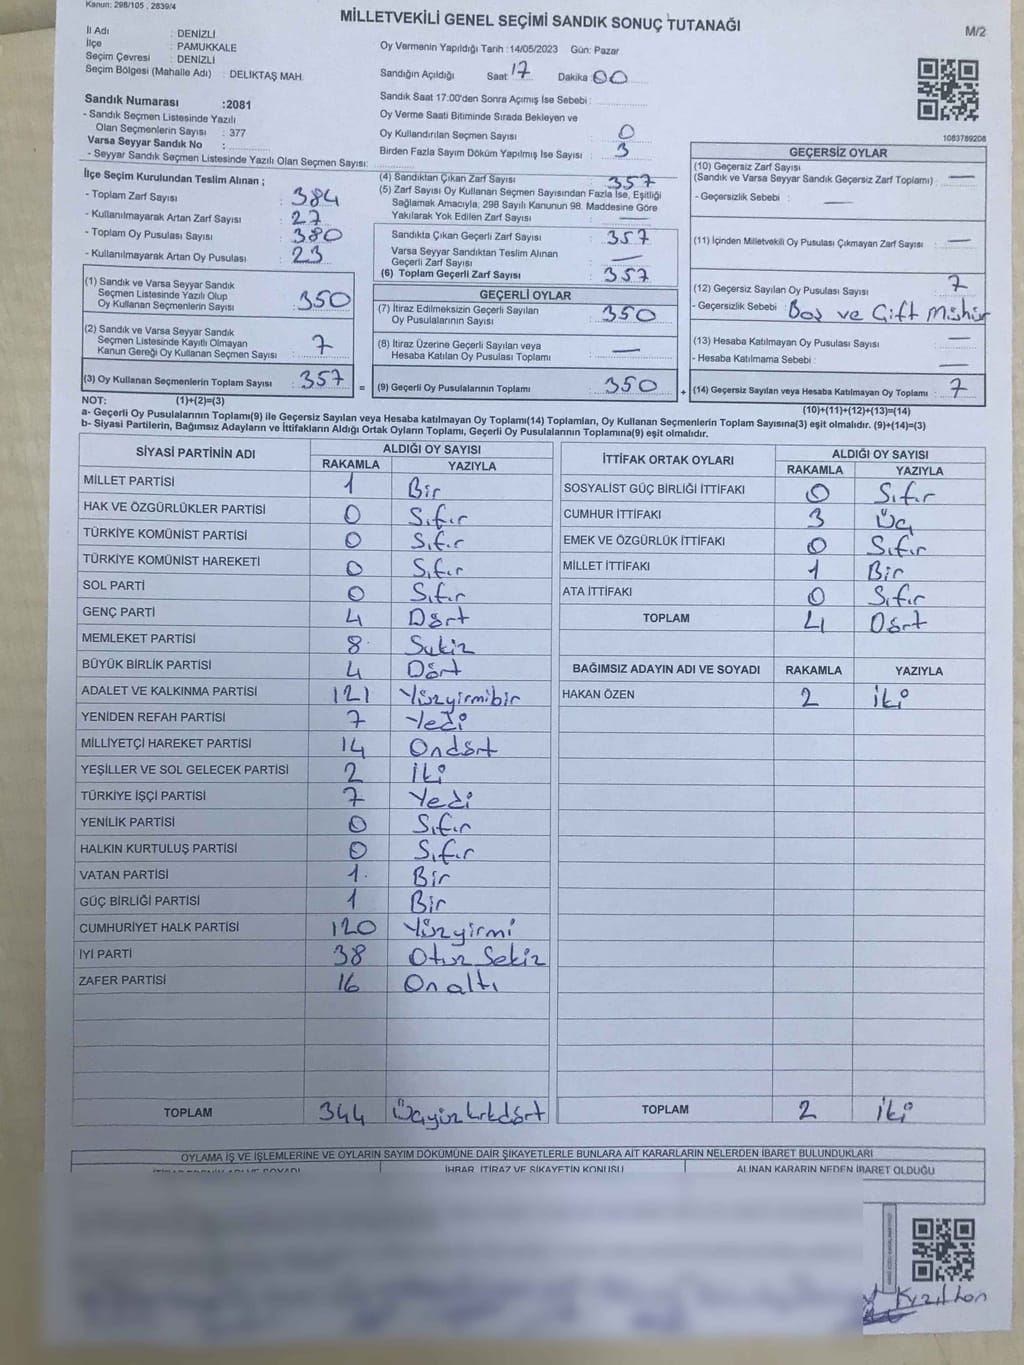 Kanun: 298/105 , 2839/4
MİLLETVEKİLİ GENEL SEÇİMİ SANDIK SONUÇ TUTANAĞI
M/2
İl Adı : DENİZLİ
İlçe : PAMUKKALE
Seçim Çevresi : DENİZLİ
Seçim Bölgesi (Mahalle Adı) : DELİKTAŞ MAH.
Sandık Numarası :2081
- Sandık Seçmen Listesinde Yazılı
Olan Seçmenlerin Sayısı : 377
Varsa Seyyar Sandık No :
- Seyyar Sandık Seçmen Listesinde Yazılı Olan Seçmen Sayısı:
İlçe Seçim Kurulundan Teslim Alınan ;
- Toplam Zarf Sayısı : 384
- Kullanılmayarak Artan Zarf Sayısı : 27
- Toplam Oy Pusulası Sayısı : 380
- Kullanılmayarak Artan Oy Pusulası : 23
(1) Sandık ve Varsa Seyyar Sandık
Seçmen Listesinde Yazılı Olup
Oy Kullanan Seçmenlerin Sayısı : 350
(2) Sandık ve Varsa Seyyar Sandık
Seçmen Listesinde Kayıtlı Olmayan
Kanun Gereği Oy Kullanan Seçmen Sayısı : 7
(3) Oy Kullanan Seçmenlerin Toplam Sayısı : 357 =
Oy Vermenin Yapıldığı Tarih :14/05/2023 Gün: Pazar
Sandığın Açıldığı Saat : 17 Dakika : 00
Sandık Saat 17:00'den Sonra Açımış İse Sebebi :
Oy Verme Saati Bitiminde Sırada Bekleyen ve
Oy Kullandırılan Seçmen Sayısı : 0
Birden Fazla Sayım Döküm Yapılmış İse Sayısı : 3
(4) Sandıktan Çıkan Zarf Sayısı : 357
(5) Zarf Sayısı Oy Kullanan Seçmen Sayısından Fazla İse, Eşitliği
Sağlamak Amacıyla, 298 Sayılı Kanunun 98. Maddesine Göre
Yakılarak Yok Edilen Zarf Sayısı : —
Sandıkta Çıkan Geçerli Zarf Sayısı : 357
Varsa Seyyar Sandıktan Teslim Alınan
Geçerli Zarf Sayısı : —
(6) Toplam Geçerli Zarf Sayısı : 357
GEÇERLİ OYLAR
(7) İtiraz Edilmeksizin Geçerli Sayılan
Oy Pusulalarının Sayısı : 350
(8) İtiraz Üzerine Geçerli Sayılan veya
Hesaba Katılan Oy Pusulası Toplamı : —
(9) Geçerli Oy Pusulalarının Toplamı : 350 +
1083789208
GEÇERSİZ OYLAR
(10) Geçersiz Zarf Sayısı
(Sandık ve Varsa Seyyar Sandık Geçersiz Zarf Toplamı) : —
- Geçersizlik Sebebi : —
(11) İçinden Milletvekili Oy Pusulası Çıkmayan Zarf Sayısı : —
(12) Geçersiz Sayılan Oy Pusulası Sayısı : 7
- Geçersizlik Sebebi : Boş ve Çift Mühür
(13) Hesaba Katılmayan Oy Pusulası Sayısı : —
- Hesaba Katılmama Sebebi : —
(14) Geçersiz Sayılan veya Hesaba Katılmayan Oy Toplamı : 7
NOT: (1)+(2)=(3)
(10)+(11)+(12)+(13)=(14)
a- Geçerli Oy Pusulalarının Toplamı(9) ile Geçersiz Sayılan veya Hesaba katılmayan Oy Toplamı(14) Toplamları, Oy Kullanan Seçmenlerin Toplam Sayısına(3) eşit olmalıdır. (9)+(14)=(3)
b- Siyasi Partilerin, Bağımsız Adayların ve İttifakların Aldığı Ortak Oyların Toplamı, Geçerli Oy Pusulalarının Toplamına(9) eşit olmalıdır.
SİYASİ PARTİNİN ADI ALDIĞI OY SAYISI
RAKAMLA YAZIYLA
MİLLET PARTİSİ 1 Bir
HAK VE ÖZGÜRLÜKLER PARTİSİ 0 Sıfır
TÜRKİYE KOMÜNİST PARTİSİ 0 Sıfır
TÜRKİYE KOMÜNİST HAREKETİ 0 Sıfır
SOL PARTİ 0 Sıfır
GENÇ PARTİ 4 Dört
MEMLEKET PARTİSİ 8 Sekiz
BÜYÜK BİRLİK PARTİSİ 4 Dört
ADALET VE KALKINMA PARTİSİ 121 Yüzyirmibir
YENİDEN REFAH PARTİSİ 7 Yedi
MİLLİYETÇİ HAREKET PARTİSİ 14 Ondört
YEŞİLLER VE SOL GELECEK PARTİSİ 2 İki
TÜRKİYE İŞÇİ PARTİSİ 7 Yedi
YENİLİK PARTİSİ 0 Sıfır
HALKIN KURTULUŞ PARTİSİ 0 Sıfır
VATAN PARTİSİ 1 Bir
GÜÇ BİRLİĞİ PARTİSİ 1 Bir
CUMHURİYET HALK PARTİSİ 120 Yüzyirmi
İYİ PARTİ 38 Otuz Sekiz
ZAFER PARTİSİ 16 Onaltı
TOPLAM 344 Üçyüz kırkdört
İTTİFAK ORTAK OYLARI ALDIĞI OY SAYISI
RAKAMLA YAZIYLA
SOSYALİST GÜÇ BİRLİĞİ İTTİFAKI 0 Sıfır
CUMHUR İTTİFAKI 3 Üç
EMEK VE ÖZGÜRLÜK İTTİFAKI 0 Sıfır
MİLLET İTTİFAKI 1 Bir
ATA İTTİFAKI 0 Sıfır
TOPLAM 4 Dört
BAĞIMSIZ ADAYIN ADI VE SOYADI RAKAMLA YAZIYLA
HAKAN ÖZEN 2 İki
TOPLAM 2 İki
OYLAMA İŞ VE İŞLEMLERİNE VE OYLARIN SAYIM DÖKÜMÜNE DAİR ŞİKAYETLERLE BUNLARA AİT KARARLARIN NELERDEN İBARET BULUNDUKLARI
İHBAR, İTİRAZ VE ŞİKAYETİN KONUSU ALINAN KARARIN NEDEN İBARET OLDUĞU